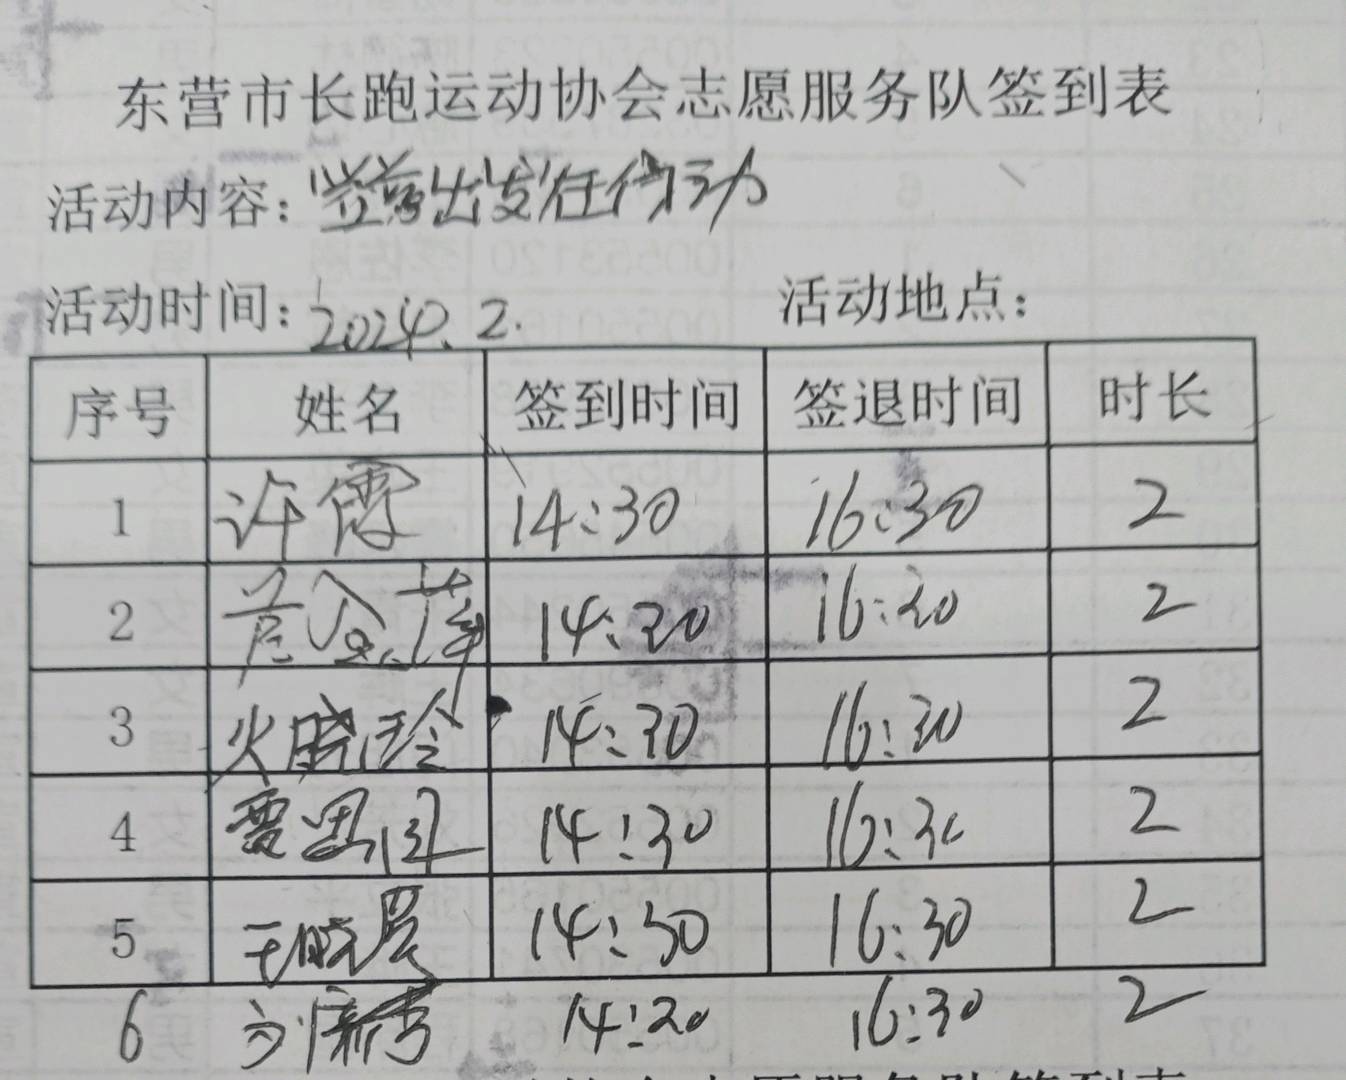 东营市长跑运动协会志愿服务队签到表
活动内容: 出发 行动
活动时间: 2024.2. 活动地点:
序号 姓名 签到时间 签退时间 时长
1 许霞 14:30 16:30 2
2 14:30 16:30 2
3 火晓玲 14:30 16:30 2
4 14:30 16:30 2
5 王晓 14:30 16:30 2
6 刘 14:20 16:30 2